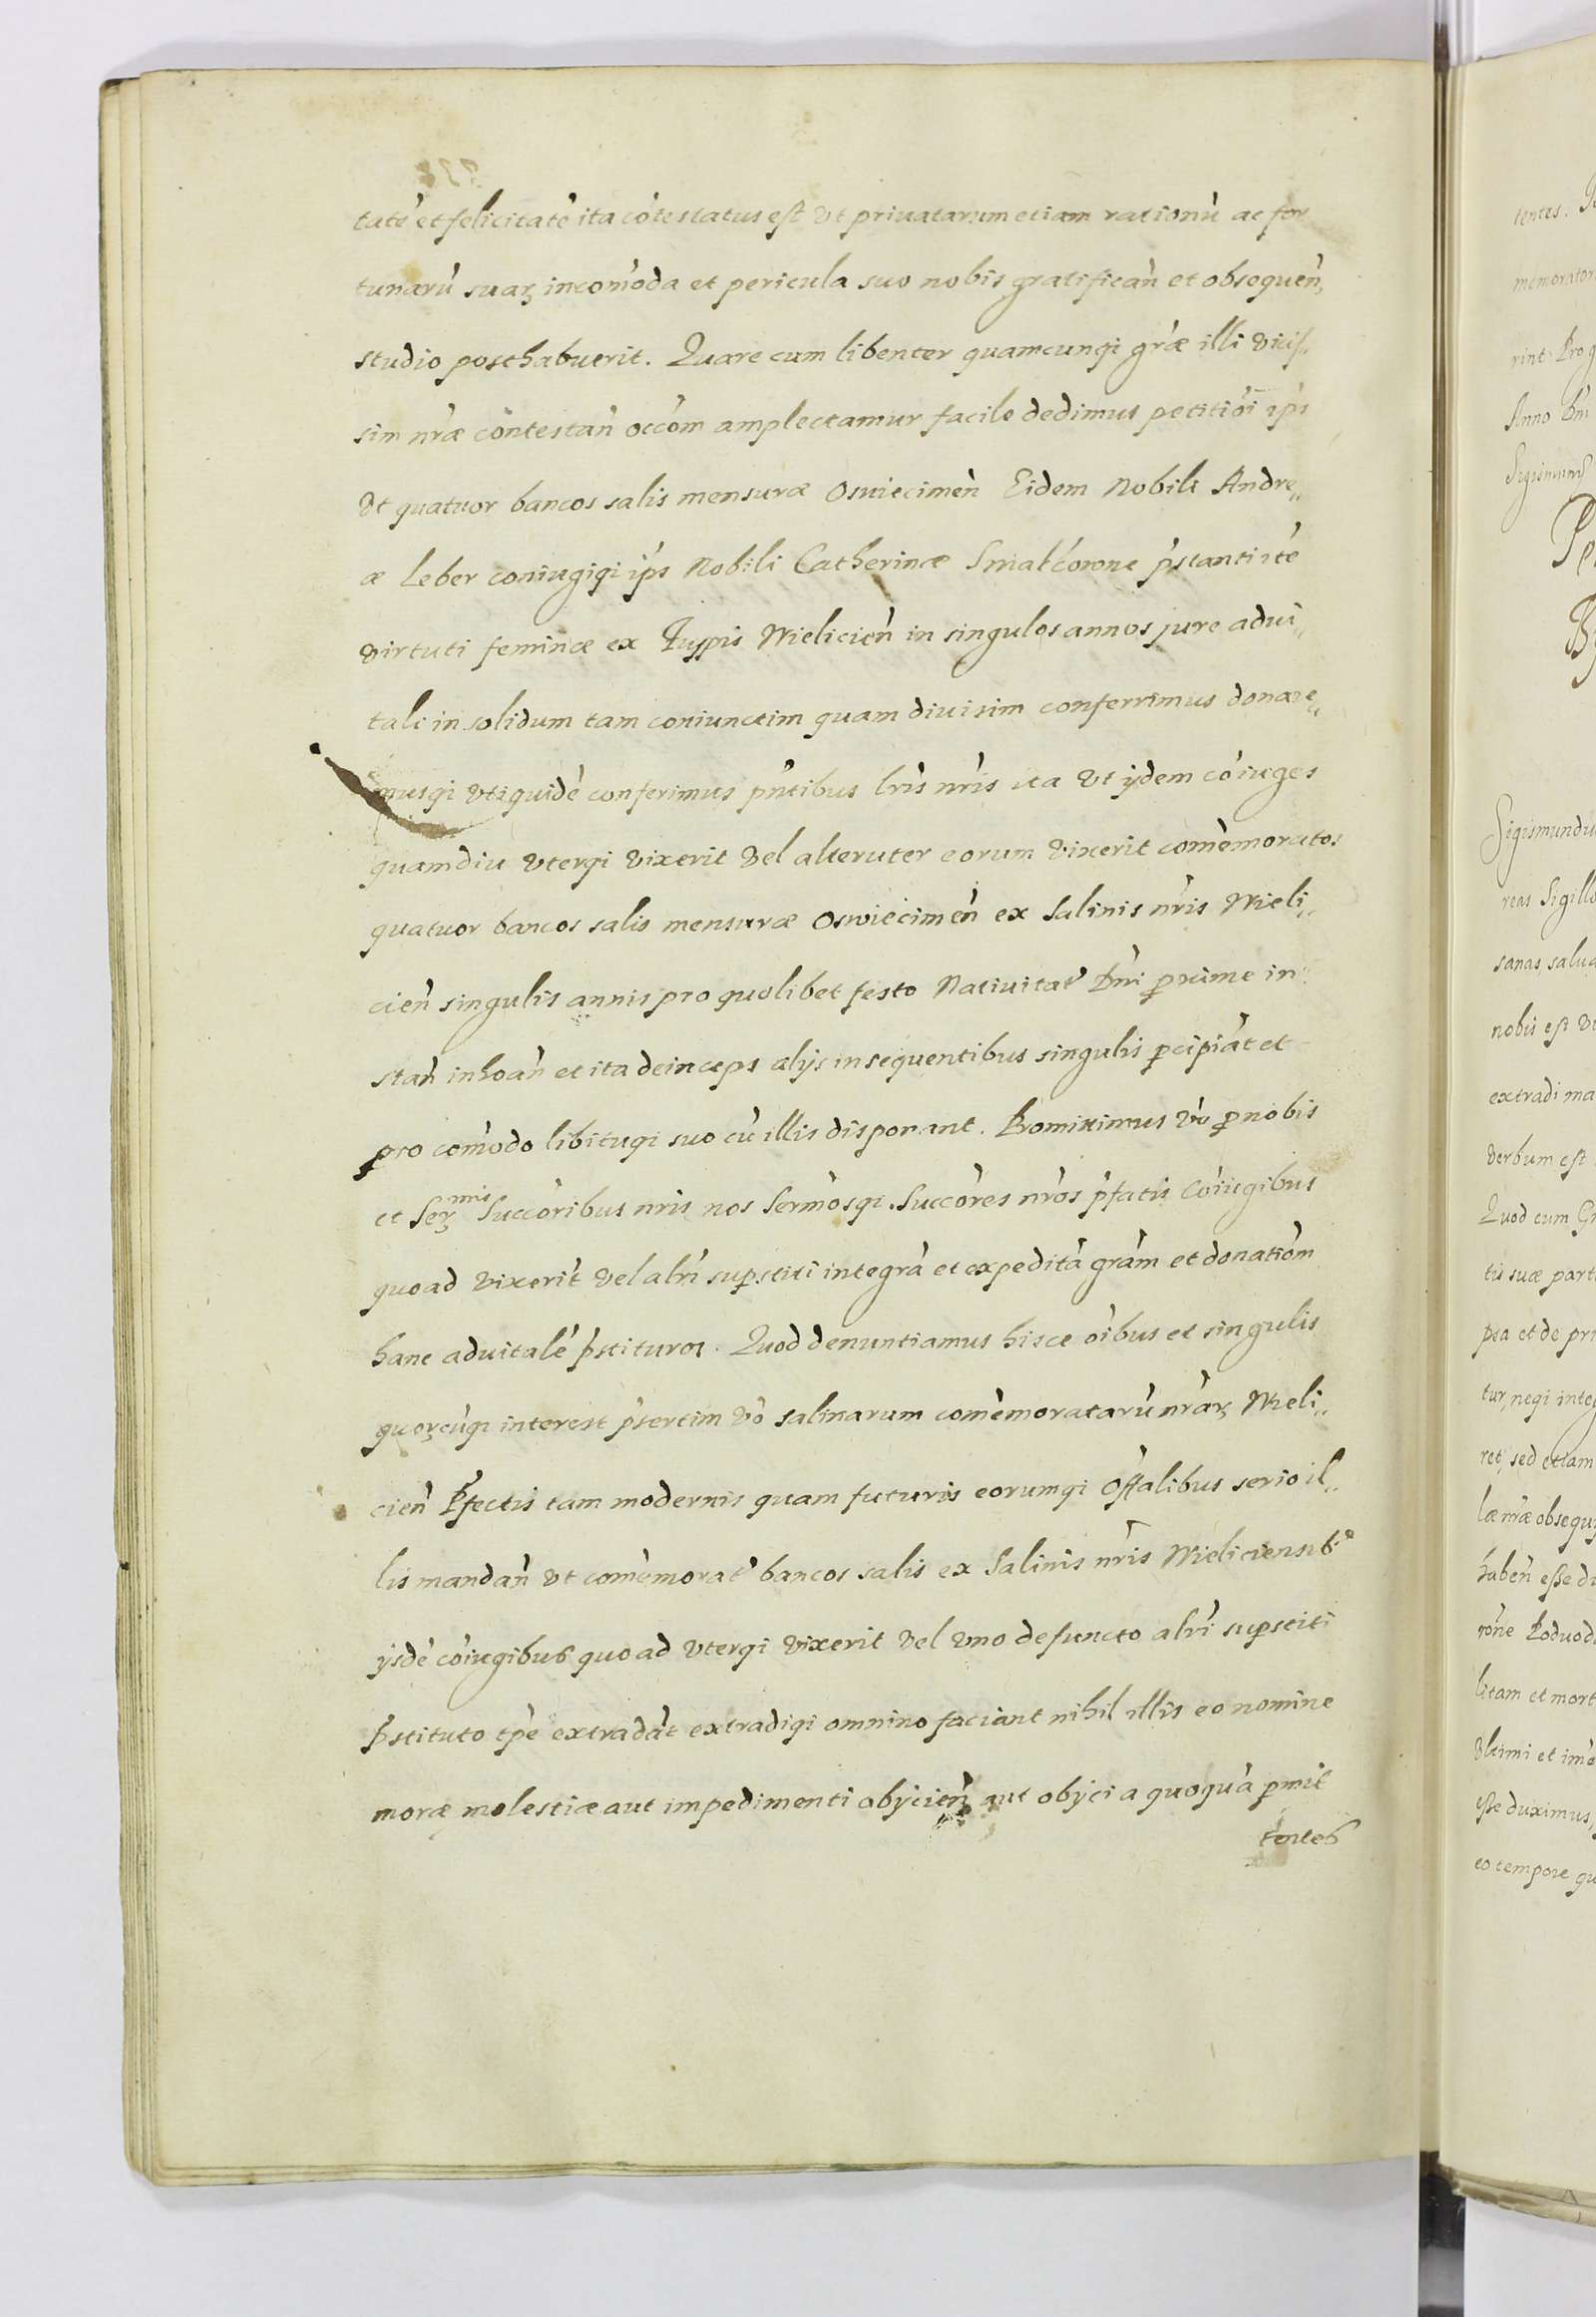 tatē et felicitatē ita cōtestatus est vt priuatarum etiam rationū ac for
tunarū suarꝫ incom̄oda et pericula suo nobis gratifican̄ et obsequen̄,
studio posthabuerit. Quare cum libenter quamcunqꝫ gr̄æ illi vicis„
sim nr̄æ contestan̄ occōm amplectamur facile dedimus petitiōi ip̄s
vt quatuor bancos salis mensuræ Oswiecimen̄ Eidem Nobili Andre„
æ Leber coniugiqꝫ ip̄s Nobili Catherinæ p̄stanti itē
virtuti feminæ ex Zuppis Wielicien̄ in singulos annos jure adui„
tali in solidum tam coniunctim quam diuisim conferrimus donare„
musqꝫ vti quidē conferimus pn̄tibus lr̄is nr̄is ita vt ijdem cōiuges
quamdiu vterqꝫ vixerit vel alteruter eorum vixerit com̄emoratos
quatuor bancos salis mensuræ Oswiecimen̄ ex Salinis nr̄is Wieli„
cien̄ singulis annis pro quolibet festo Natiuitat̄ Dn̄i ꝓxime in
stan̄ inhoan̄ et ita deinceps alijs insequentibus singulis ꝑcipiāt et
pro com̄odo libituqꝫ suo cū illis disponant. Promittimus vō ꝓ nobis
et Serꝫmis Succōribus nr̄is nos Sermōsqꝫ Succōres nr̄os p̄fatis Cōiugibus
quoad vixerīt vel alr̄i suꝑstiti integrā et expeditā gr̄am et donatiōm
hanc aduitalē p̄stituros. Quod denuntiamus hisce oībus et singulis
quorꝫcūqꝫ interest p̄sertim vō salinarum com̄emoratarū nr̄arꝫ Wieli„
cien̄ P̄fectis tam modernis quam futuris eorumqꝫ Offālibus serio il„
lis mandan̄ vt com̄emorat̄ bancos salis ex Salinis nr̄is Wieliciensib9
ijsdē cōiugibus quoad vterqꝫ vixerit vel vno defuncto alr̄i suꝑstiti
p̄stituto tp̄e extradāt extradiqꝫ omnino faciant nihil illis eo nomine
moræ molestiæ aut impedimenti obijcien̄ aut obijci a quoquā ꝑmit
tentes
tentes.
memorator
rint
Anno Dn̄i
Sigismund
Sigismundu
reas Sigillo
sanas salua
nobis est vt
extradi ma
verbum est
Quod cum Gr
tis suæ part
psa et de pri
tur, neqꝫ integ
ret, sed etiam
læ nr̄æ obsequij
haben̄ esse du
rōne
litam et mort
vltimi et im
esse duximus,
eo tempore qu